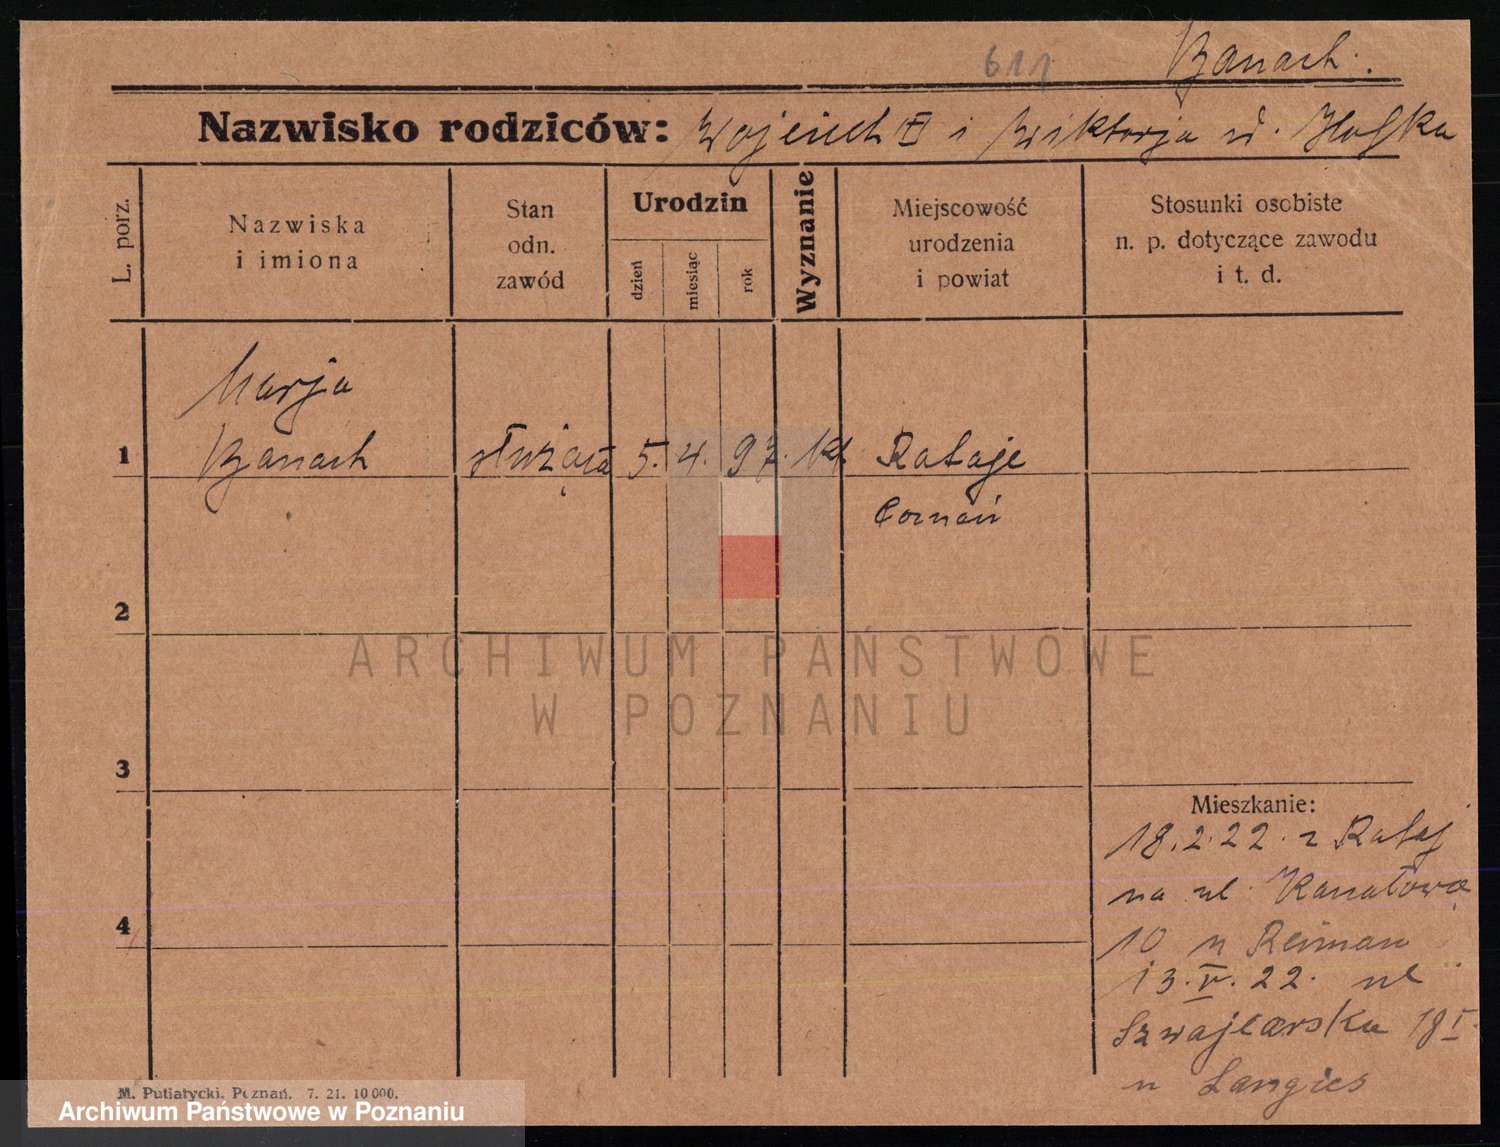 611 Banach.
Nazwisko rodziców: Wojciech i Wiktorja
L. porz.
Nazwiska
i imiona
Stan
odn.
zawód
Urodzin
dzień
miesiąc
rok
Wyznanie
Miejscowość
urodzenia
i powiat
Stosunki osobiste
n. p. dotyczące zawodu
i t. d.
Marja
1 Banach służąca 5. 4. 97. kt. Rataje
Poznań
2
3
4
Mieszkanie:
18.2.22. z Rataj
na ul. Kanałową
10 u Reiman
13.V.22. ul
Szwajcarska 18 I
u Langies
M. Putiatycki, Poznań. 7. 21. 10 000.
ARCHIWUM PAŃSTWOWE
W POZNANIU
Archiwum Państwowe w Poznaniu